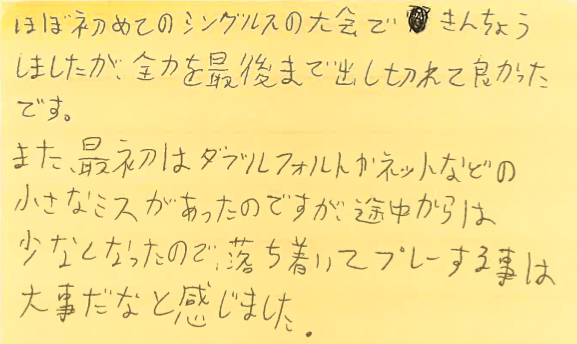 ほぼ初めてのシングルスの大会できんちょう
しましたが、全力を最後まで出し切れて良かった
です。
また、最初はダブルフォルトかネットなどの
小さなミスがあったのですが、途中からは
少なくなったので、落ち着いてプレーする事は
大事だなと感じました.